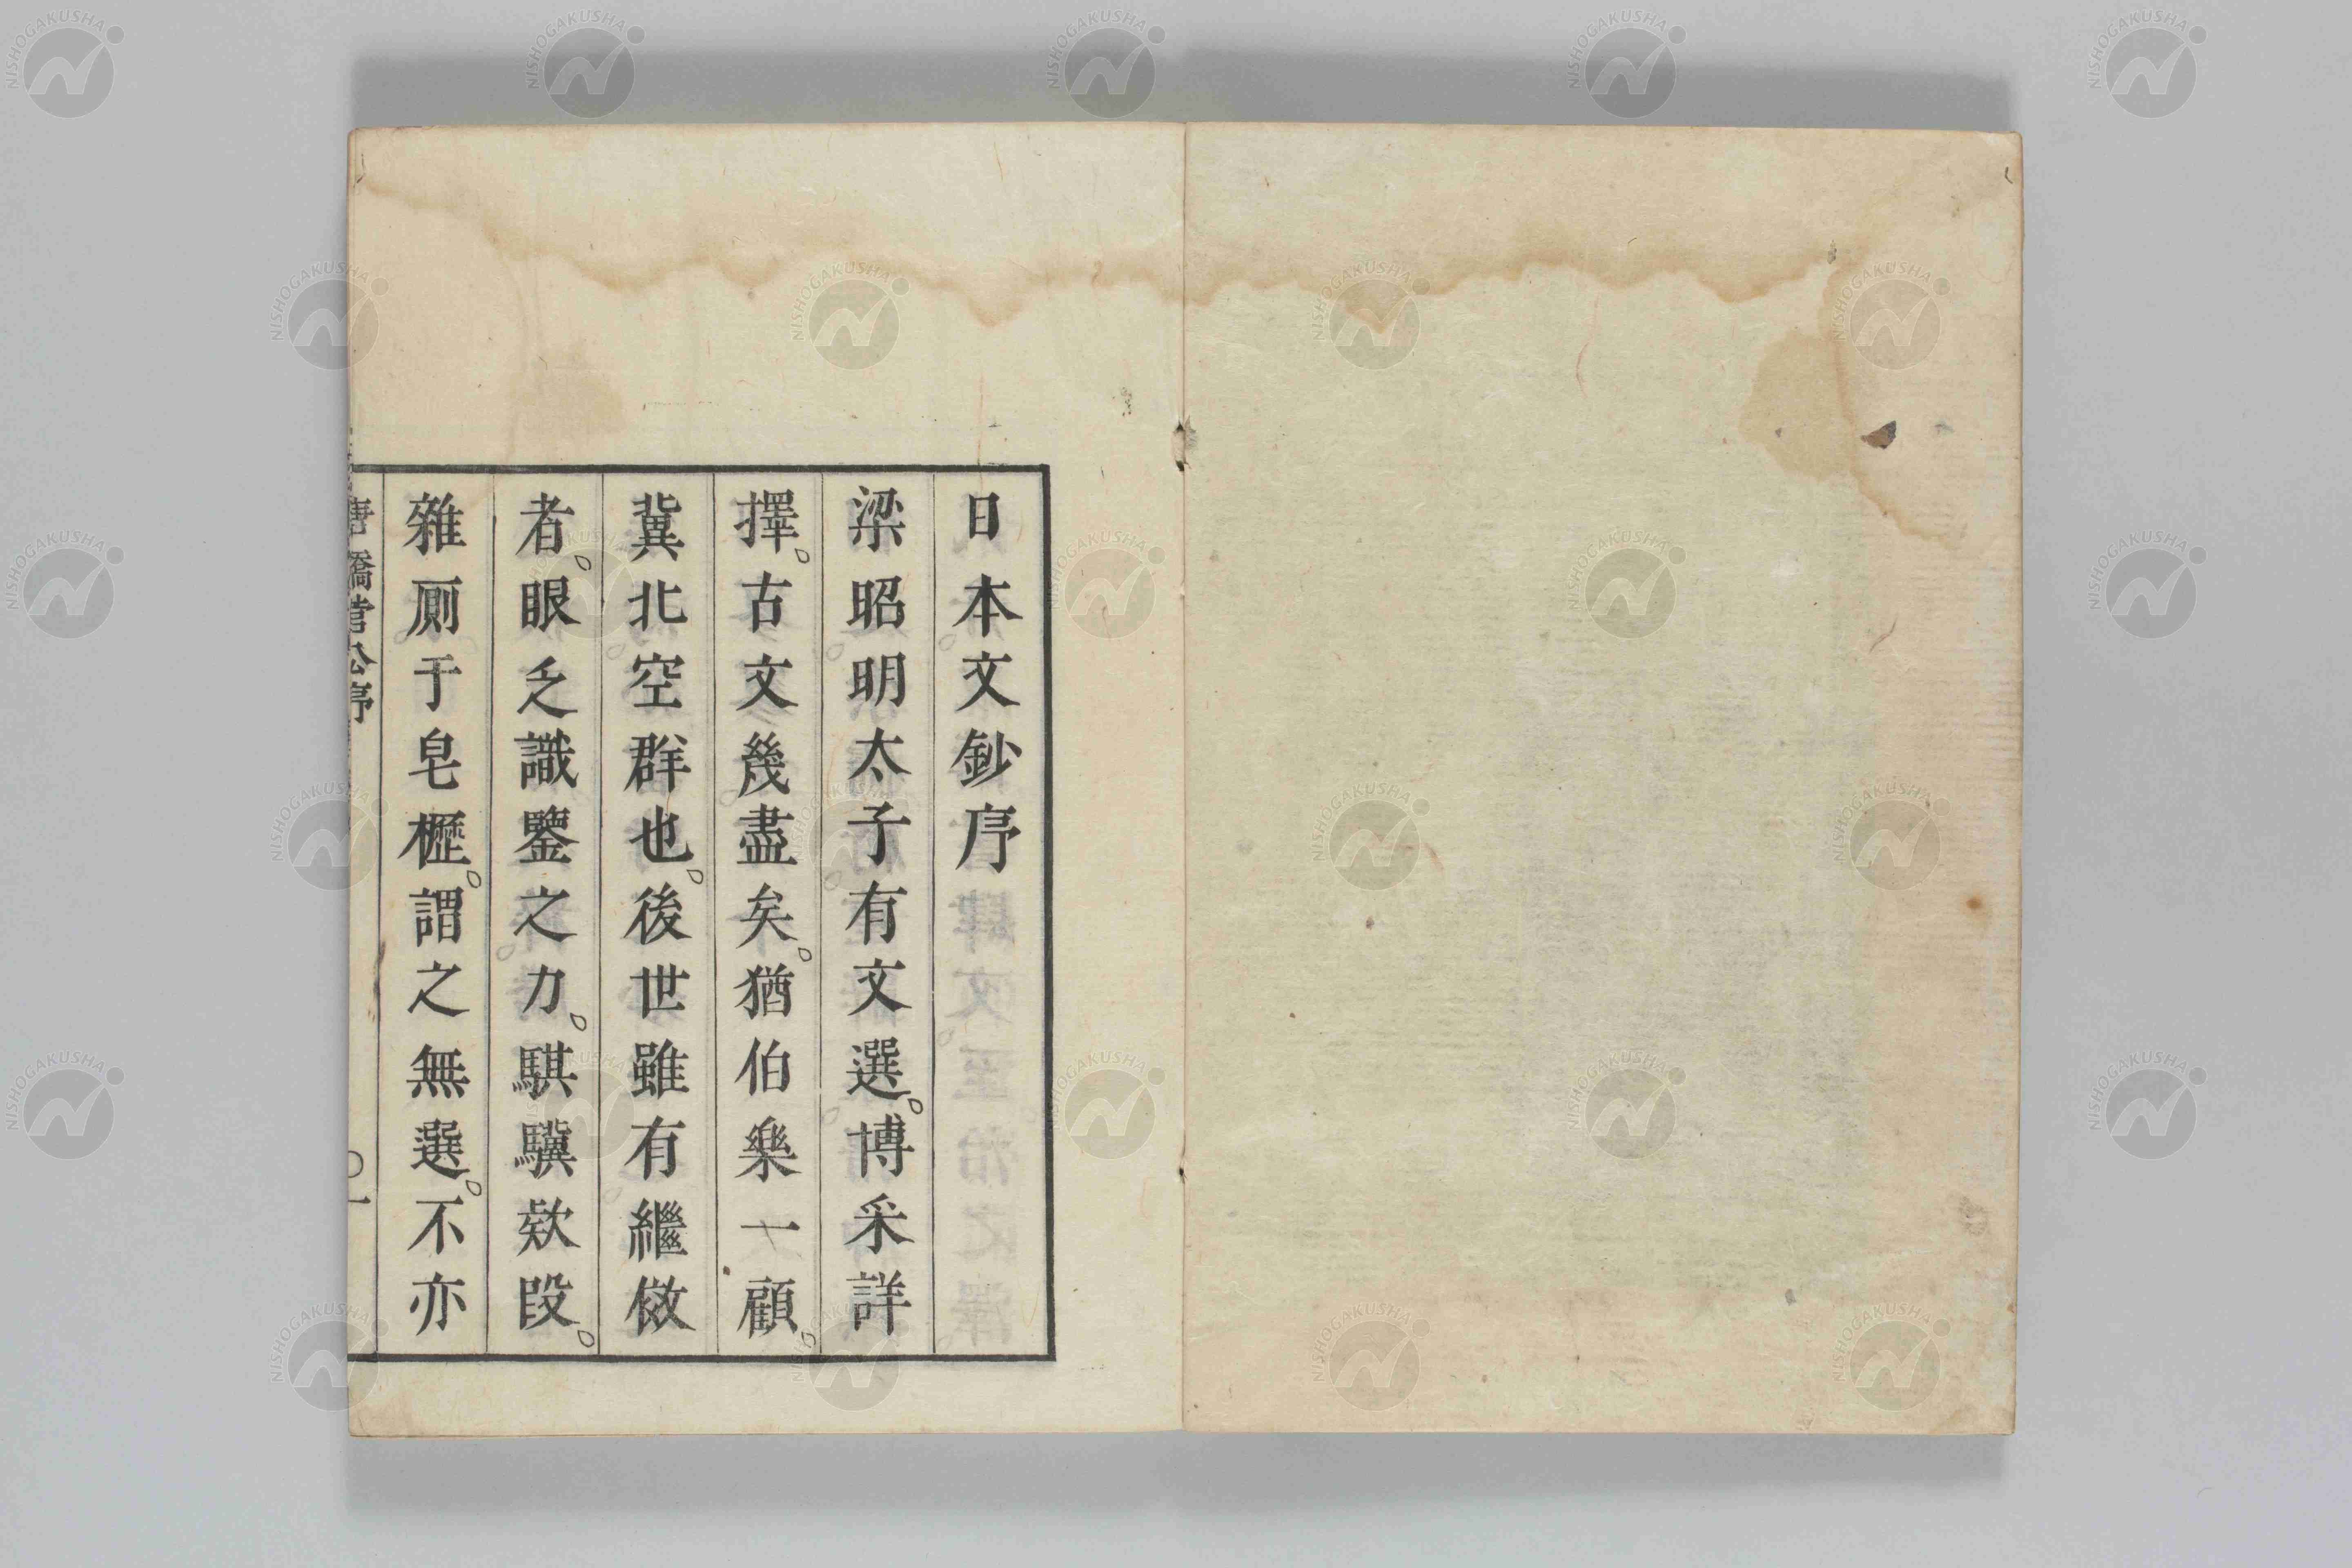 日本文鈔序
梁昭明太子有文選。博采詳
擇。古文幾盡矣。猶伯樂一顧。
冀北空群也。後世雖有繼倣
者。眼乏識鑒之力。騏驥欵段。
雜厠于皂櫪。謂之無選。不亦
唐橋菅公序 〇一
NISHOGAKUSHA